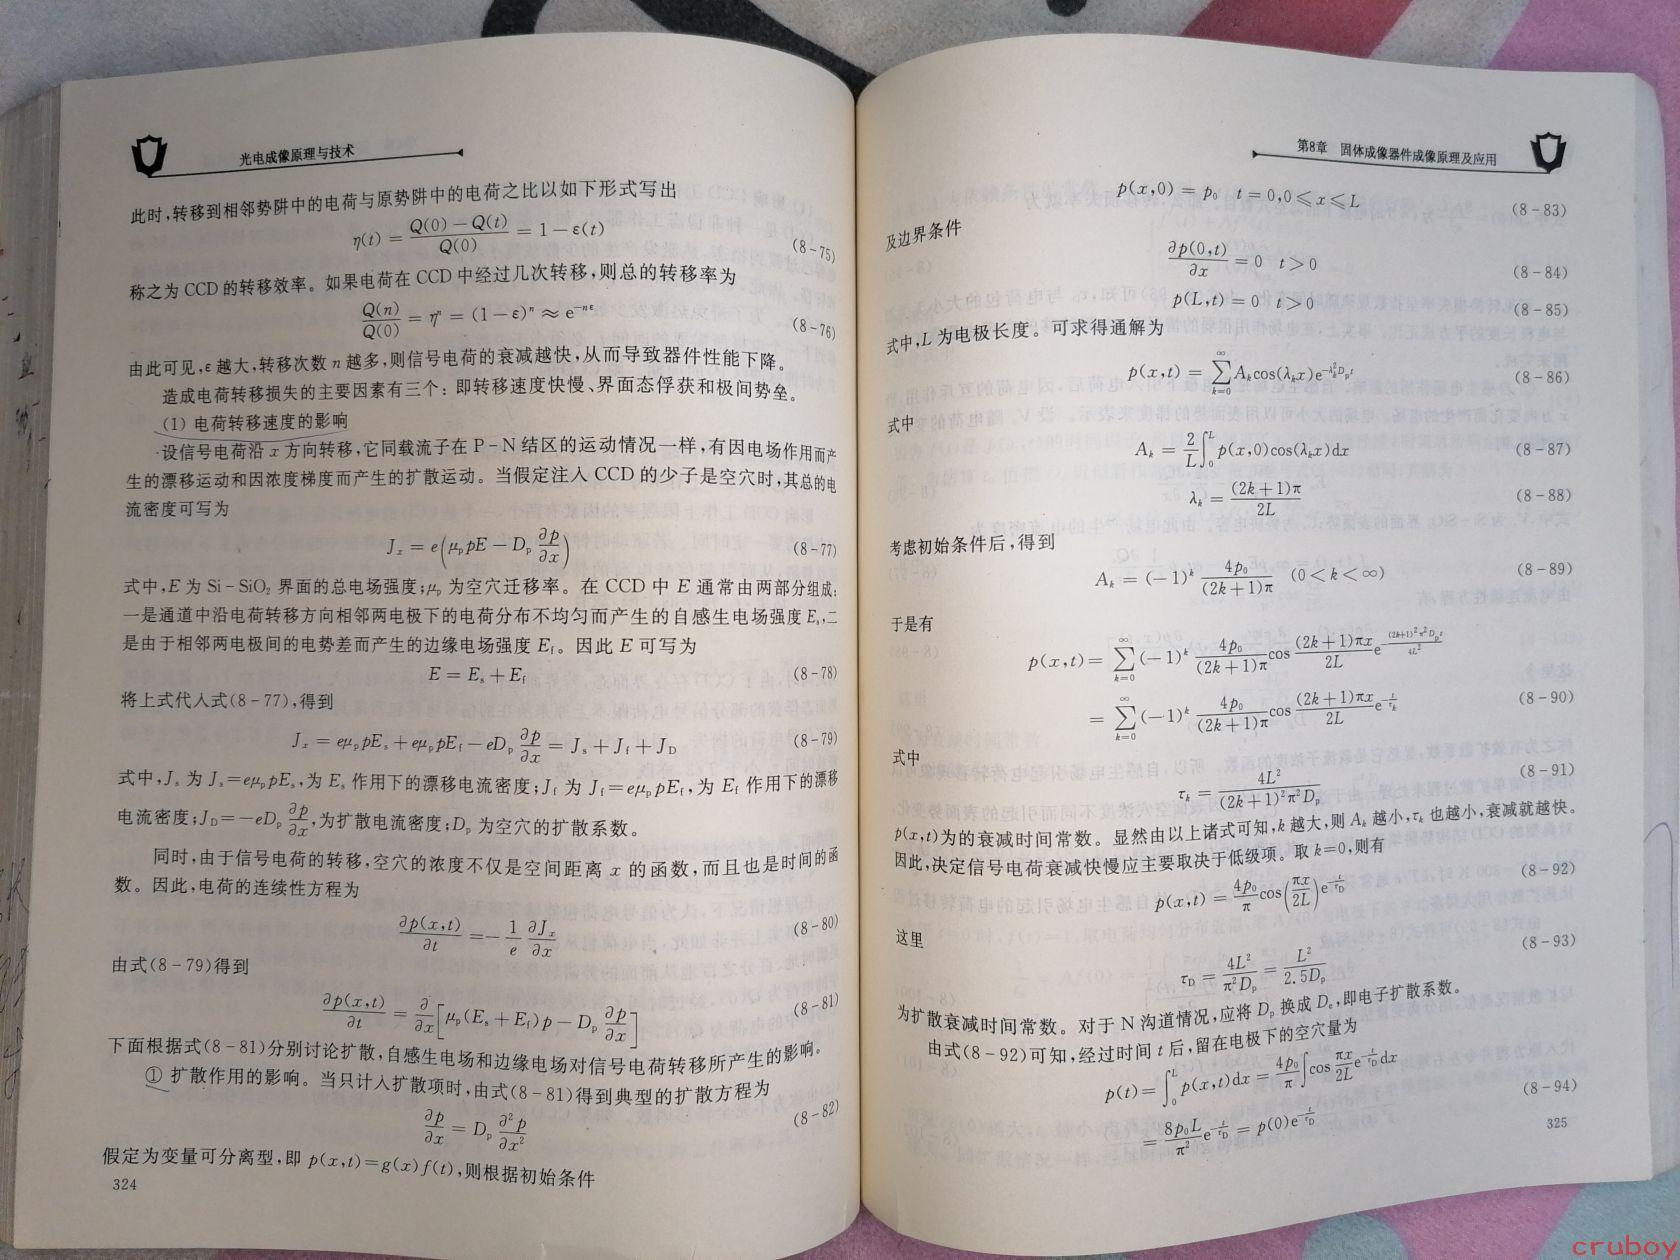 光电成像原理与技术
此时,转移到相邻势阱中的电荷与原势阱中的电荷之比以如下形式写出
η(t) = \frac{Q(0)-Q(t)}{Q(0)} = 1-ε(t) (8-75)
称之为CCD的转移效率。如果电荷在CCD中经过几次转移,则总的转移率为
\frac{Q(n)}{Q(0)} = η^n = (1-ε)^n ≈ e^{-nε} (8-76)
由此可见,ε越大,转移次数n越多,则信号电荷的衰减越快,从而导致器件性能下降。
造成电荷转移损失的主要因素有三个:即转移速度快慢、界面态俘获和极间势垒。
(1) 电荷转移速度的影响
设信号电荷沿x方向转移,它同载流子在P-N结区的运动情况一样,有因电场作用而产
生的漂移运动和因浓度梯度而产生的扩散运动。当假定注入CCD的少子是空穴时,其总的电
流密度可写为
J_x = e(μ_p pE - D_p \frac{∂p}{∂x}) (8-77)
式中,E为Si-SiO₂界面的总电场强度;μ_p为空穴迁移率。在CCD中E通常由两部分组成:
一是通道中沿电荷转移方向相邻两电极下的电荷分布不均匀而产生的自感生电场强度E_s,二
是由于相邻两电极间的电势差而产生的边缘电场强度E_f。因此E可写为
E = E_s + E_f (8-78)
将上式代入式(8-77),得到
J_x = eμ_p pE_s + eμ_p pE_f - eD_p \frac{∂p}{∂x} = J_s + J_f + J_D (8-79)
式中,J_s为J_s=eμ_p pE_s,为E_s作用下的漂移电流密度;J_f为J_f=eμ_p pE_f,为E_f作用下的漂移
电流密度;J_D=-eD_p \frac{∂p}{∂x},为扩散电流密度;D_p为空穴的扩散系数。
同时,由于信号电荷的转移,空穴的浓度不仅是空间距离x的函数,而且也是时间的函
数。因此,电荷的连续性方程为
\frac{∂p(x,t)}{∂t} = -\frac{1}{e} \frac{∂J_x}{∂x} (8-80)
由式(8-79)得到
\frac{∂p(x,t)}{∂t} = \frac{∂}{∂x}[μ_p(E_s+E_f)p - D_p \frac{∂p}{∂x}] (8-81)
下面根据式(8-81)分别讨论扩散,自感生电场和边缘电场对信号电荷转移所产生的影响。
① 扩散作用的影响。当只计入扩散项时,由式(8-81)得到典型的扩散方程为
\frac{∂p}{∂x} = D_p \frac{∂²p}{∂x²} (8-82)
假定为变量可分离型,即p(x,t)=g(x)f(t),则根据初始条件
324
第8章 固体成像器件成像原理及应用
p(x,0) = p_0 t=0,0≤x≤L (8-83)
及边界条件
\frac{∂p(0,t)}{∂x} = 0 t>0 (8-84)
p(L,t) = 0 t>0 (8-85)
式中,L为电极长度。可求得通解为
p(x,t) = \sum_{k=0}^{∞} A_k cos(λ_k x) e^{-λ_k^2 D_p t} (8-86)
式中
A_k = \frac{2}{L} \int_0^L p(x,0)cos(λ_k x)dx (8-87)
λ_k = \frac{(2k+1)π}{2L} (8-88)
考虑初始条件后,得到
A_k = (-1)^k \frac{4p_0}{(2k+1)π} (0<k<∞) (8-89)
于是有
p(x,t) = \sum_{k=0}^{∞} (-1)^k \frac{4p_0}{(2k+1)π} cos \frac{(2k+1)πx}{2L} e^{-\frac{(2k+1)^2 π^2 D_p t}{4L^2}}
= \sum_{k=0}^{∞} (-1)^k \frac{4p_0}{(2k+1)π} cos \frac{(2k+1)πx}{2L} e^{-\frac{t}{τ_k}} (8-90)
式中
τ_k = \frac{4L²}{(2k+1)²π²D_p} (8-91)
p(x,t)为的衰减时间常数。显然由以上诸式可知,k越大,则A_k越小,τ_k也越小,衰减就越快。
因此,决定信号电荷衰减快慢应主要取决于低级项。取k=0,则有
p(x,t) = \frac{4p_0}{π} cos(\frac{πx}{2L}) e^{-\frac{t}{τ_D}} (8-92)
这里
τ_D = \frac{4L²}{π²D_p} = \frac{L²}{2.5D_p} (8-93)
为扩散衰减时间常数。对于N沟道情况,应将D_p换成D_e,即电子扩散系数。
由式(8-92)可知,经过时间t后,留在电极下的空穴量为
p(t) = \int_0^L p(x,t)dx = \frac{4p_0}{π} \int cos \frac{πx}{2L} e^{-\frac{t}{τ_D}} dx
= \frac{8p_0 L}{π²} e^{-\frac{t}{τ_D}} = p(0)e^{-\frac{t}{τ_D}} (8-94)
325
cruboy